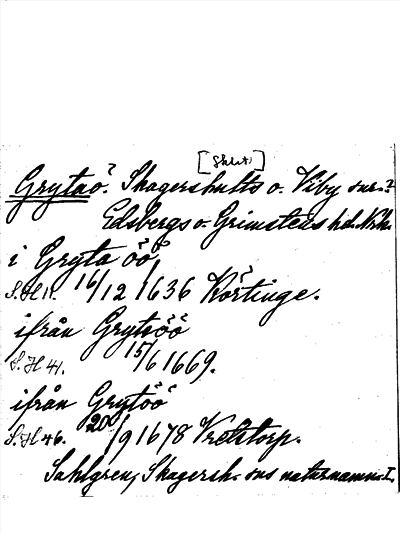 [Skht]
Grytaö? Skagershults o. Viby snr.?
Edsbergs o. Grimstens hd. Nrk.
i Gryta öö
S.H 11. 16/12 1636 Körtinge.
ifrån Grytöö
S.H 41. 15/6 1669.
ifrån Grytöö
S.H 46. 20/9 1678 Vretstorp.
Sahlgren, Skagersh. sns naturnamn. I.